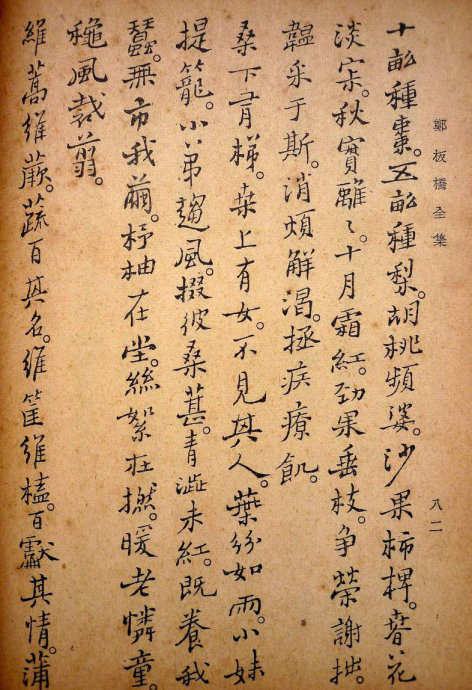 鄭板橋全集
八二
十畝種棗。五畝種梨。胡桃頻婆。沙果柿椑。春花
淡寂。秋實離〻。十月霜紅。勁果垂枝。爭榮謝拙。
韞采于斯。消煩解渴。拯疾療飢。
桑下有梯。桑上有女。不見其人。葉紛如雨。小妹
提籠。小弟趨風。掇彼桑葚。青澁未紅。既養我
蠶。無市我繭。杼柚在堂。絲絮在撚。暖老憐童。
穐風裁翦。
維蒿維蕨。蔬百其名。維筐維榼。百獻其情。蒲